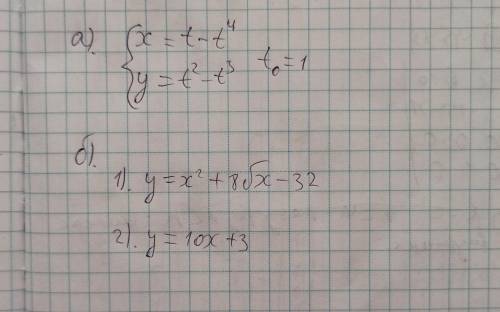 а). { x = t - t⁴
y = t² - t³ t₀ = 1
б).
1). y = x² + 8√x - 32
2). y = 10x + 3